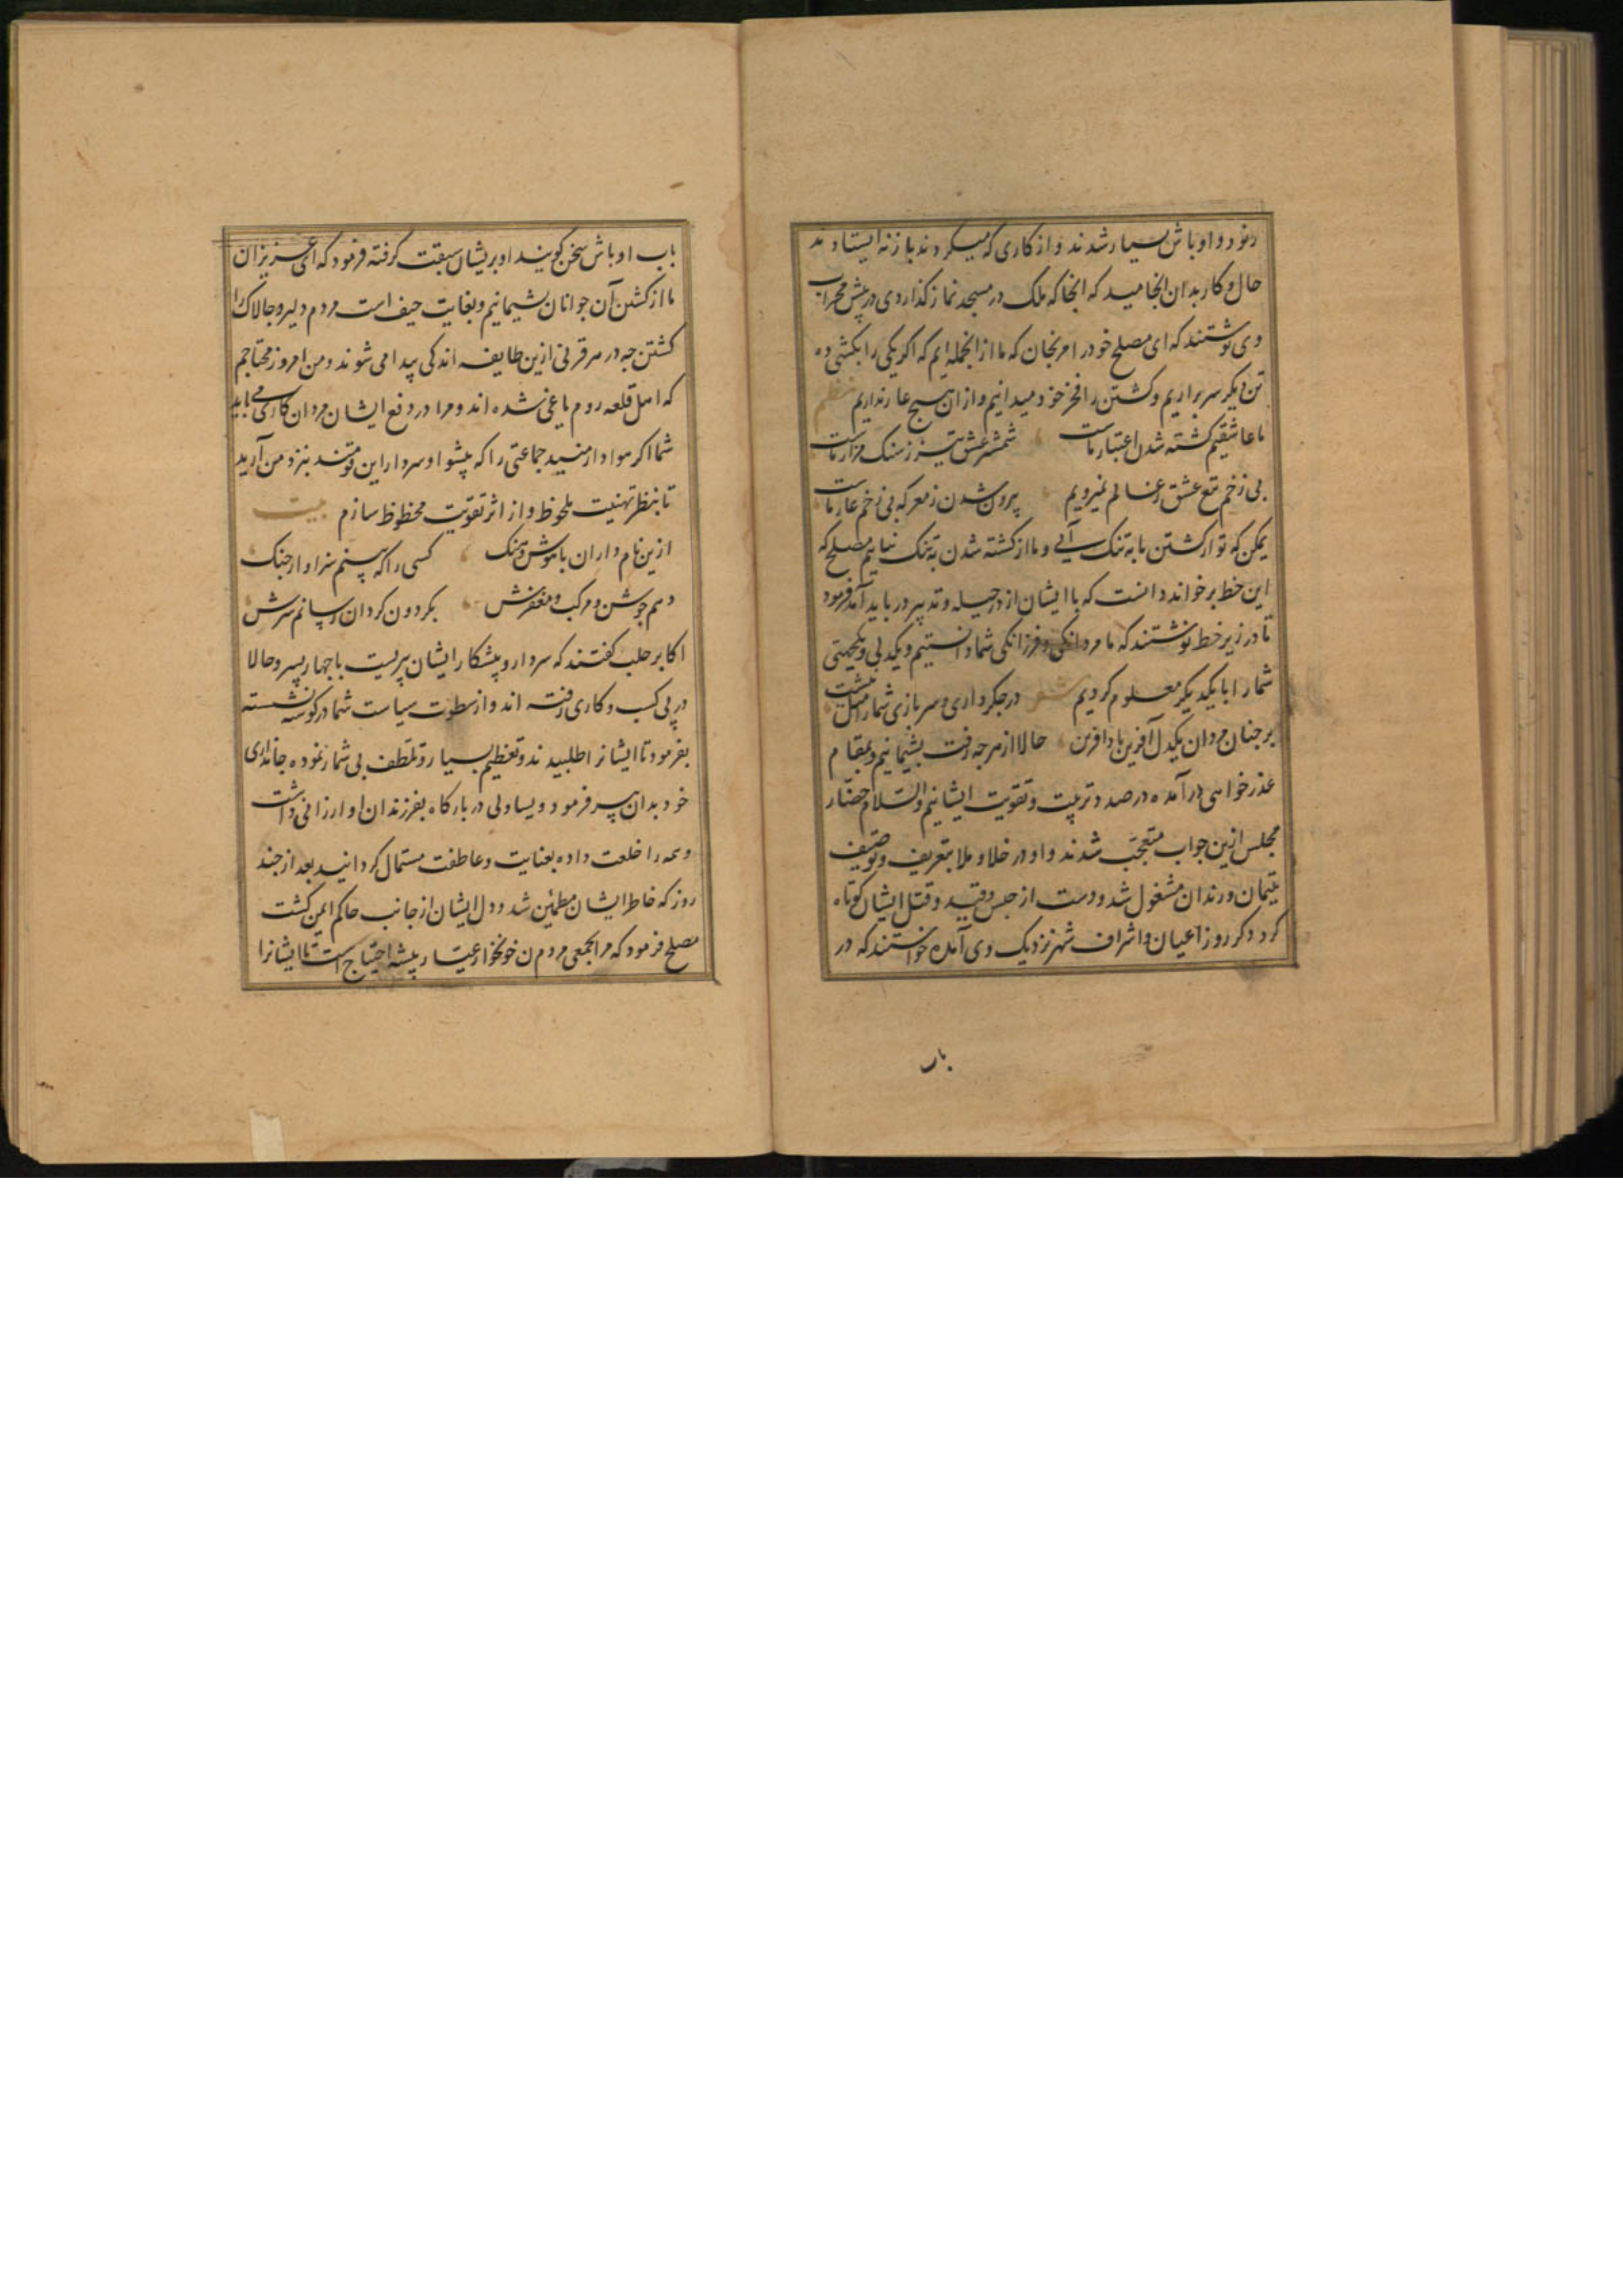 رنود و اوباش بسیار شدند و از کاری که میکردند باز نه ایستادند
حال و کار بدان انجامید که انجا که ملک در مسجد نماز گذاردی در پیش محراب
وی نوشتند که ای مصلح خود را مرنجان که ما از انجمله ایم که اگر یکی را بکشی ده
تن دیگر سر براریم و کشتن را فخر خود میدانیم و ازان هیچ عار نداریم نظم
ما عاشقیم کشته شدن اعتبار ماست شمشیر عشق تیز ز سنک مزار ماست
بی زخم تیغ عشق ز عالم نمیرویم بیرون شدن ز معرکه بی زخم عار ماست
یمکن که تو از کشتن ما به تنک آیی و ما از کشته شدن به تنک نیاییم مصلح که
این خط بر خواند دانست که با ایشان از در حیله و تدبیر در باید آمد فرمود
تا در زیر خط نوشتند که ما مردانکی و فرزانکی شما دانستیم و یکدلی و یکجهتی
شما را با یکدیگر معلوم کردیم شعر در جکرداری و سربازی شما را مثل نیست
بر جنان مردان یکدل آفرین باد افرین حالا از هر جه رفت بشیمانیم و بمقام
عذرخواهی در آمده در صدد تربیت و تقویت ایشانیم والسلام حضار
مجلس ازین جواب متعجب شدند و او در خلا و ملا بتعریف و توصیف
یتیمان و رندان مشغول شد و دست از حبس و قید و قتل ایشان کوتاه
کرد دکر روز اعیان و اشراف شهر نزدیک وی آمده خواستند که در
باب
باب اوباش سخن کویند او بریشان سبقت کرفته فرمود که ای عزیزان
ما از کشتن آن جوانان بشیمانیم و بغایت حیف است مردم دلیر و جالاک را
کشتن جه در هر قرنی ازین طایفه اندکی پیدا می شوند و من امروز محتاجم
که اهل قلعه روم یاغی شده اند و مرا در دفع ایشان مردان کاری می باید
شما اکر هوادار منید جماعتی را که پیشوا و سردار این قومند بنزد من آرید
تا بنظر تهنیت ملحوظ و از اثر تقویت محظوظ سازم بیت
ازین نام داران با هوش و هنک کسی را که بینم سزاوار جنک
دهم جوشن و مرکب و مغفرش بکردون کردان رسانم سرش
اکابر حلب کفتند که سردار و پیشکار ایشان پیریست با جهار پسر و حالا
در پی کسب و کاری رفته اند و از سطوت سیاست شما در کوشه نشسته
بفرمود تا ایشانرا طلبیدند و تعظیم بسیار و تلطف بی شمار نموده جانداری
خود بدان پیر فرمود و یساولی در بارکاه بفرزندان او ارزانی داشت
و همه را خلعت داده بعنایت و عاطفت مستمال کردانید بعد از جند
روز که خاطر ایشان مطمئن شد و دل ایشان از جانب حاکم ایمن کشت
مصلح فرمود که مرا بجمعی مردم خونخوار عیار پیشه احتیاج است تا ایشانرا